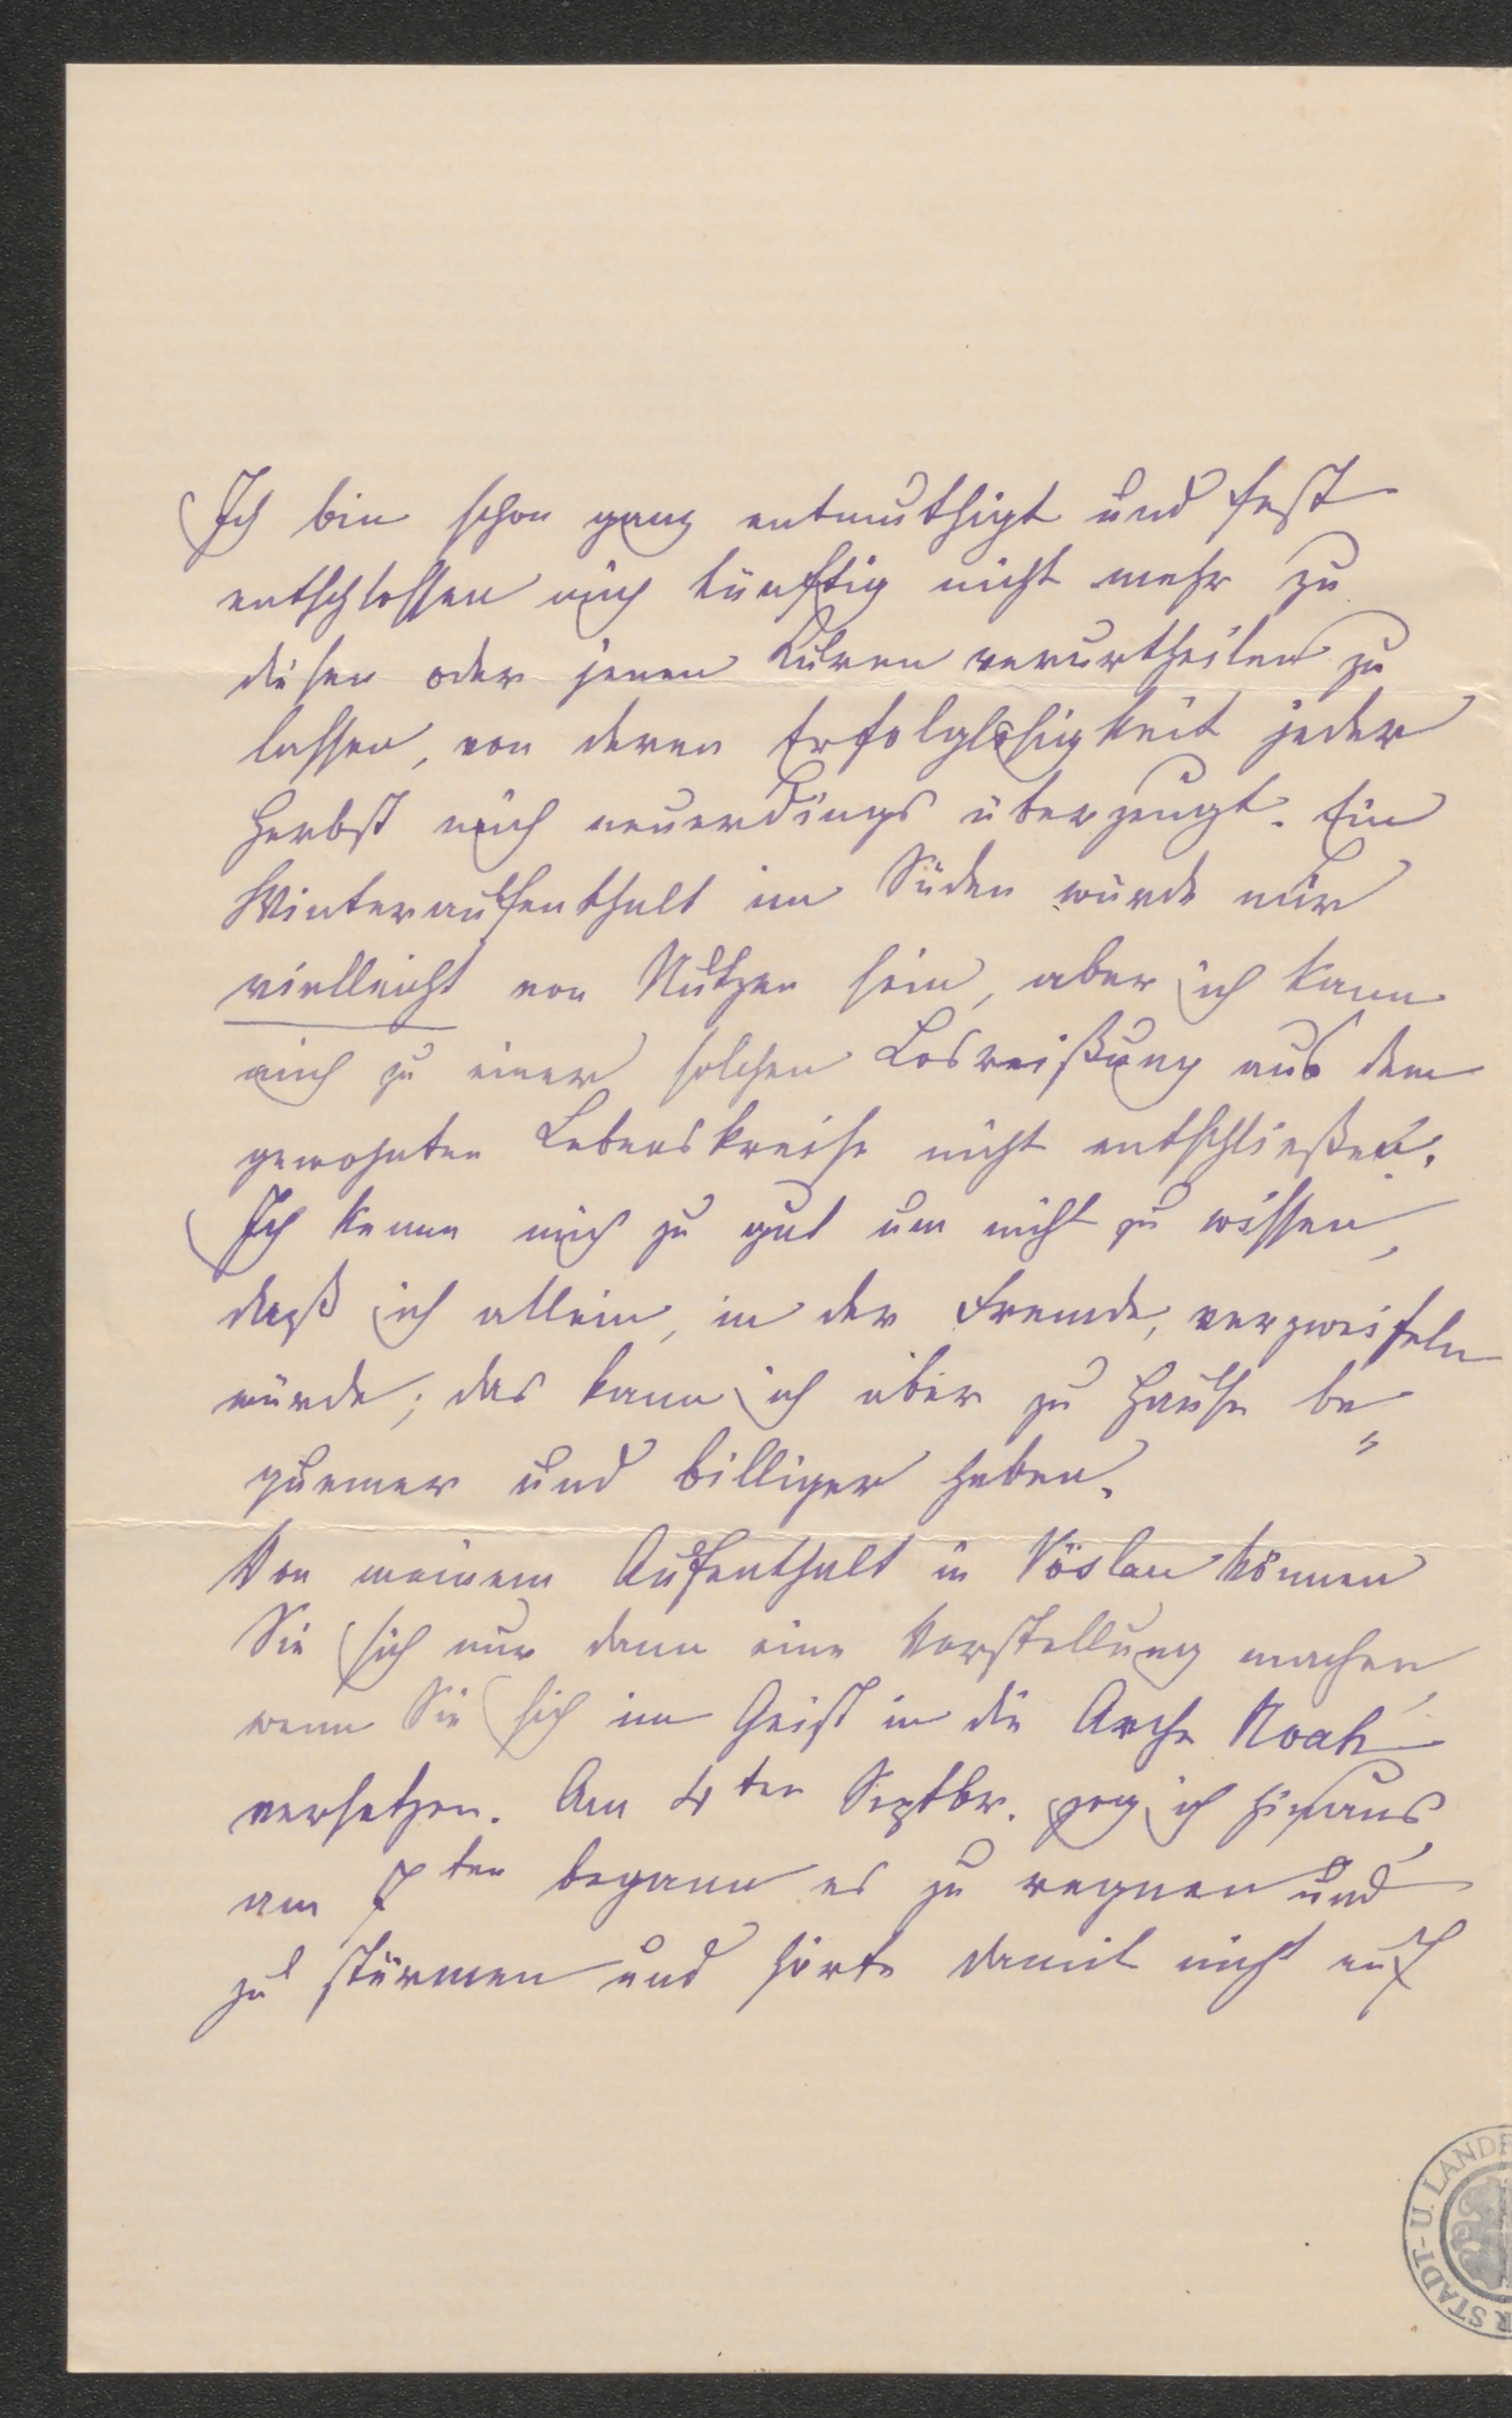 Ich bin schon ganz entmuthigt und fest
entschlossen mich künftig nicht mehr zu
diesen oder jenen Kuren verurtheilen zu
lassen, von deren Erfolglosigkeit jeder
Herbst mich neuerdings überzeugt. Ein
Winteraufenthalt im Süden würde mir
vielleicht von Nutzen sein, aber ich kann
mich zu einer solchen Losreißung aus dem
gewohnten Lebenskreise nicht entschließen.
Ich kenne mich zu gut um nicht zu wissen,
daß ich allein, in der Fremde, verzweifeln
würde; das kann ich aber zu Hause be=
quemer und billiger haben.
Von meinem Aufenthalt in Vöslau können
Sie sich nur dann eine Vorstellung machen,
wenn Sie sich im Geist in die Arche Noah
versetzen. Am 4ten Septbr. zog ich hinaus,
am 7ten begann es zu regnen und
zu stürmen und hörte damit nicht auf
STADT- U. LANDE